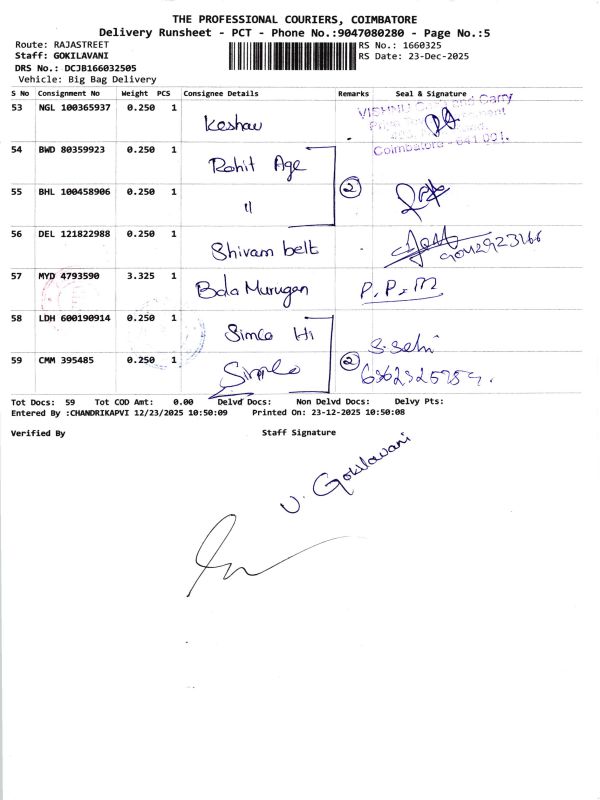 THE PROFESSIONAL COURIERS, COIMBATORE
Delivery Runsheet - PCT - Phone No.:9047080280 - Page No.:5
Route: RAJASTREET RS No.: 1660325
Staff: GOKILAVANI RS Date: 23-Dec-2025
DRS No.: DCJB166032505
Vehicle: Big Bag Delivery
S No Consignment No Weight PCS Consignee Details Remarks Seal & Signature
53 NGL 100365937 0.250 1 Keshav
VISHNU Cash and Carry
Coimbatore - 641 001.
54 BWD 80359923 0.250 1 Rohit Age
55 BHL 100458906 0.250 1 11 2
56 DEL 121822988 0.250 1 Shivam belt
57 MYD 4793590 3.325 1 Bala Murugan P.P.M
58 LDH 600190914 0.250 1 Simco Hi
59 CMM 395485 0.250 1 2
Tot Docs: 59 Tot COD Amt: 0.00 Delvd Docs: Non Delvd Docs: Delvy Pts:
Entered By :CHANDRIKAPVI 12/23/2025 10:50:09 Printed On: 23-12-2025 10:50:08
Verified By Staff Signature
V. Gokilavani